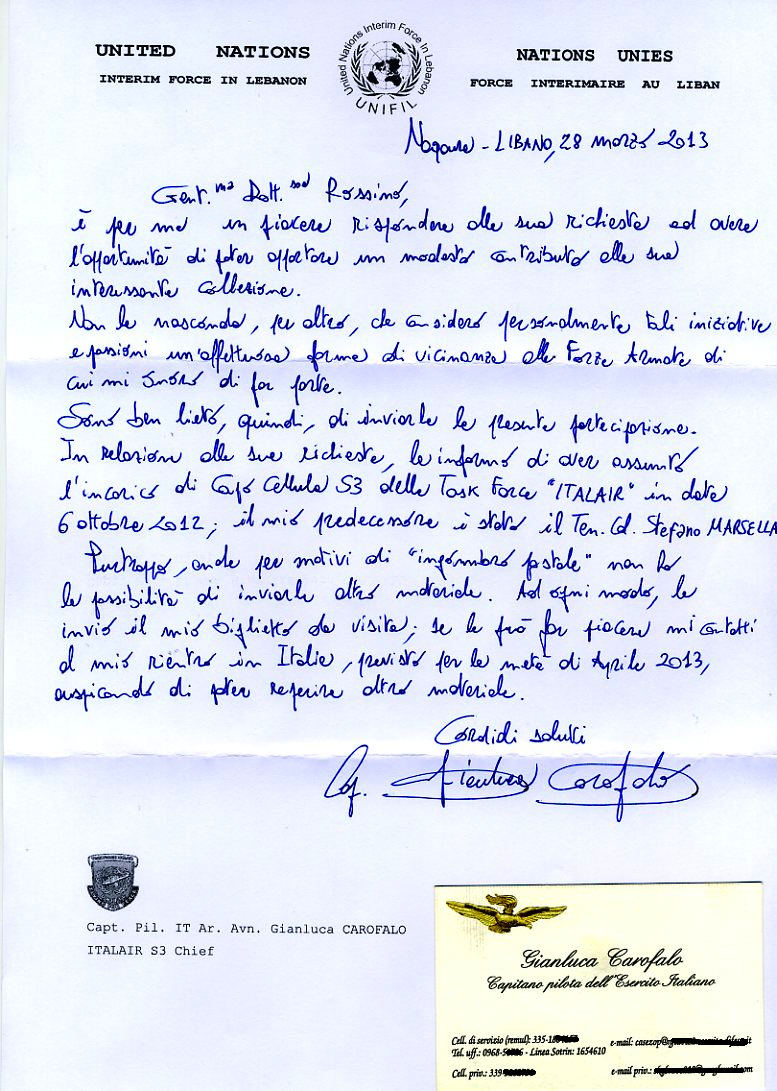 UNITED NATIONS
INTERIM FORCE IN LEBANON
United Nations Interim Force In Lebanon
UNIFIL
NATIONS UNIES
FORCE INTERIMAIRE AU LIBAN
Naqoura - LIBANO, 28 marzo 2013
Gent.ma Dott.ssa Rossino,
è per me un piacere rispondere alla sua richiesta ed avere
l'opportunità di poter apportare un modesto contributo alla sua
interessante collezione.
Non le nascondo, per altro, che considero personalmente tali iniziative
e passioni un'affettuosa forma di vicinanza alle Forze Armate di
cui mi onoro di far parte.
Sono ben lieto, quindi, di inviarle la presente partecipazione.
In relazione alle sue richieste, la informo di aver assunto
l'incarico di Capo Cellula S3 della Task Force "ITALAIR" in data
6 ottobre 2012; il mio predecessore è stato il Ten. Col. Stefano MARSELLA
Purtroppo, anche per motivi di "ingombro postale" non ho
la possibilità di inviarle altro materiale. Ad ogni modo, le
invio il mio biglietto da visita; se le può far piacere mi contatti
al mio rientro in Italia, previsto per la metà di Aprile 2013,
auspicando di poter reperire altro materiale.
Cordiali saluti
Cap. Gianluca Carofalo
Capt. Pil. IT Ar. Avn. Gianluca CAROFALO
ITALAIR S3 Chief
Gianluca Carofalo
Capitano pilota dell'Esercito Italiano
Cell. di servizio (remul): 335-18
e-mail: casezop@
Tel. uff.: 0968-5 - Linea Sotrin: 1654610
Cell. priv.: 339
e-mail priv.: